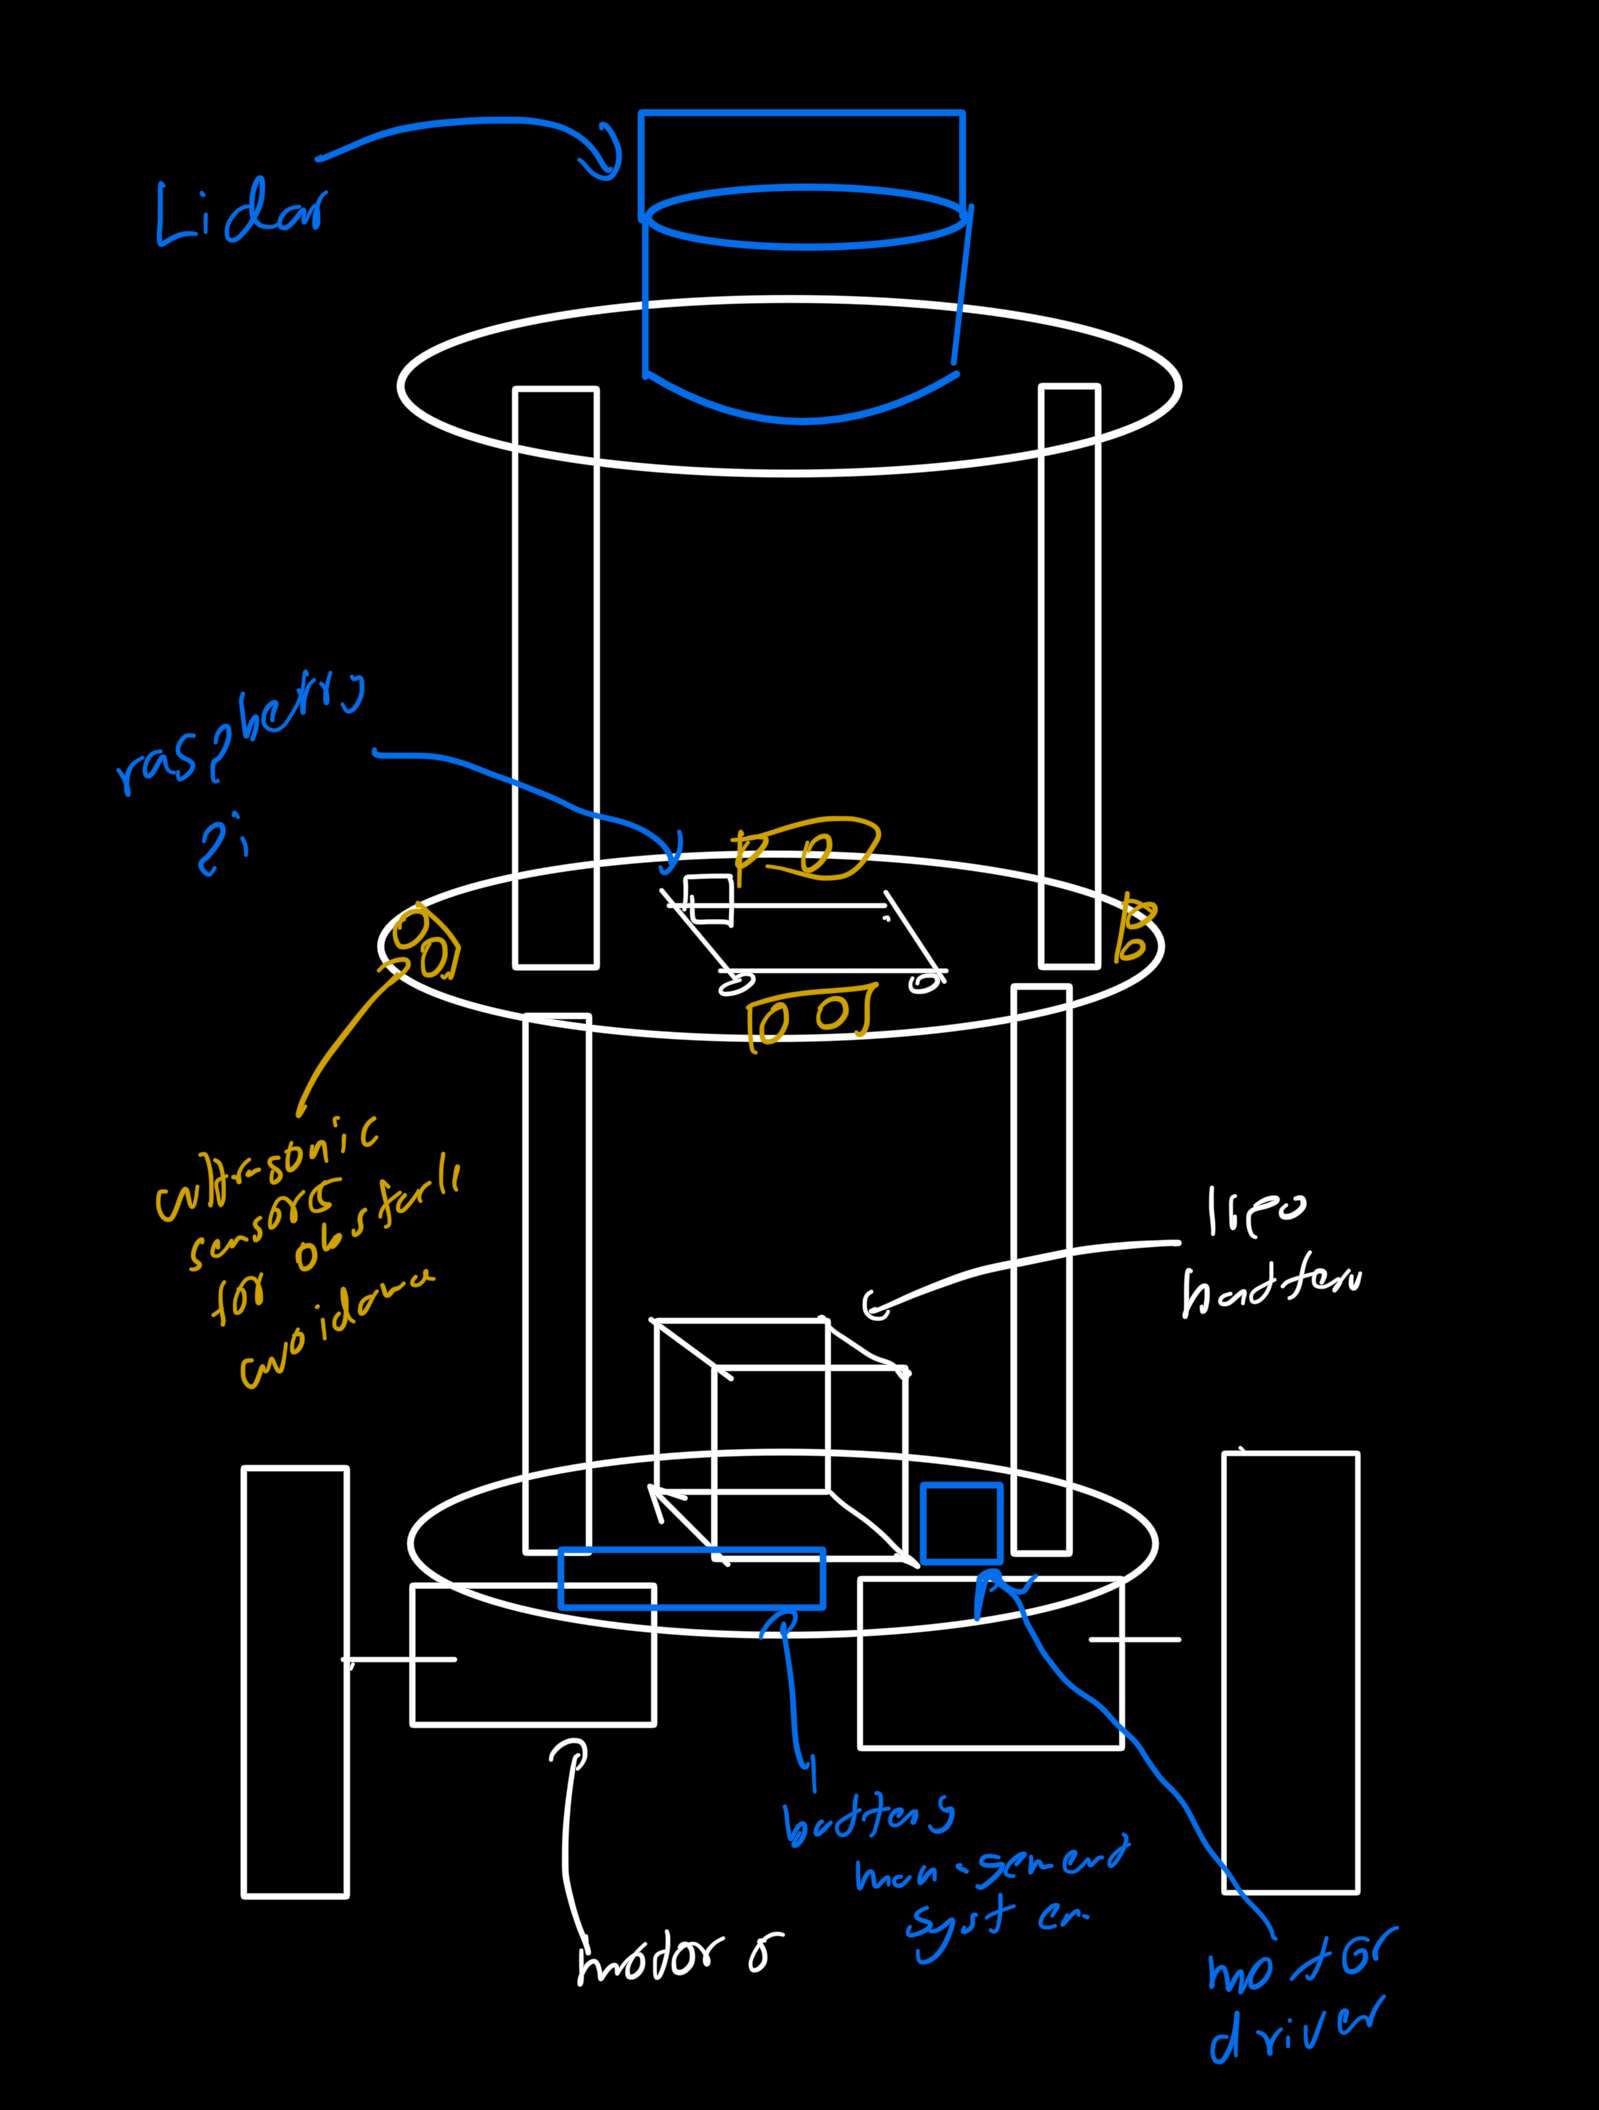 Lidar
raspberry
Pi
ultrasonic
sensors
for obstacll
avoidance
lipo
battery
battery
management
system
motors
motor
driver